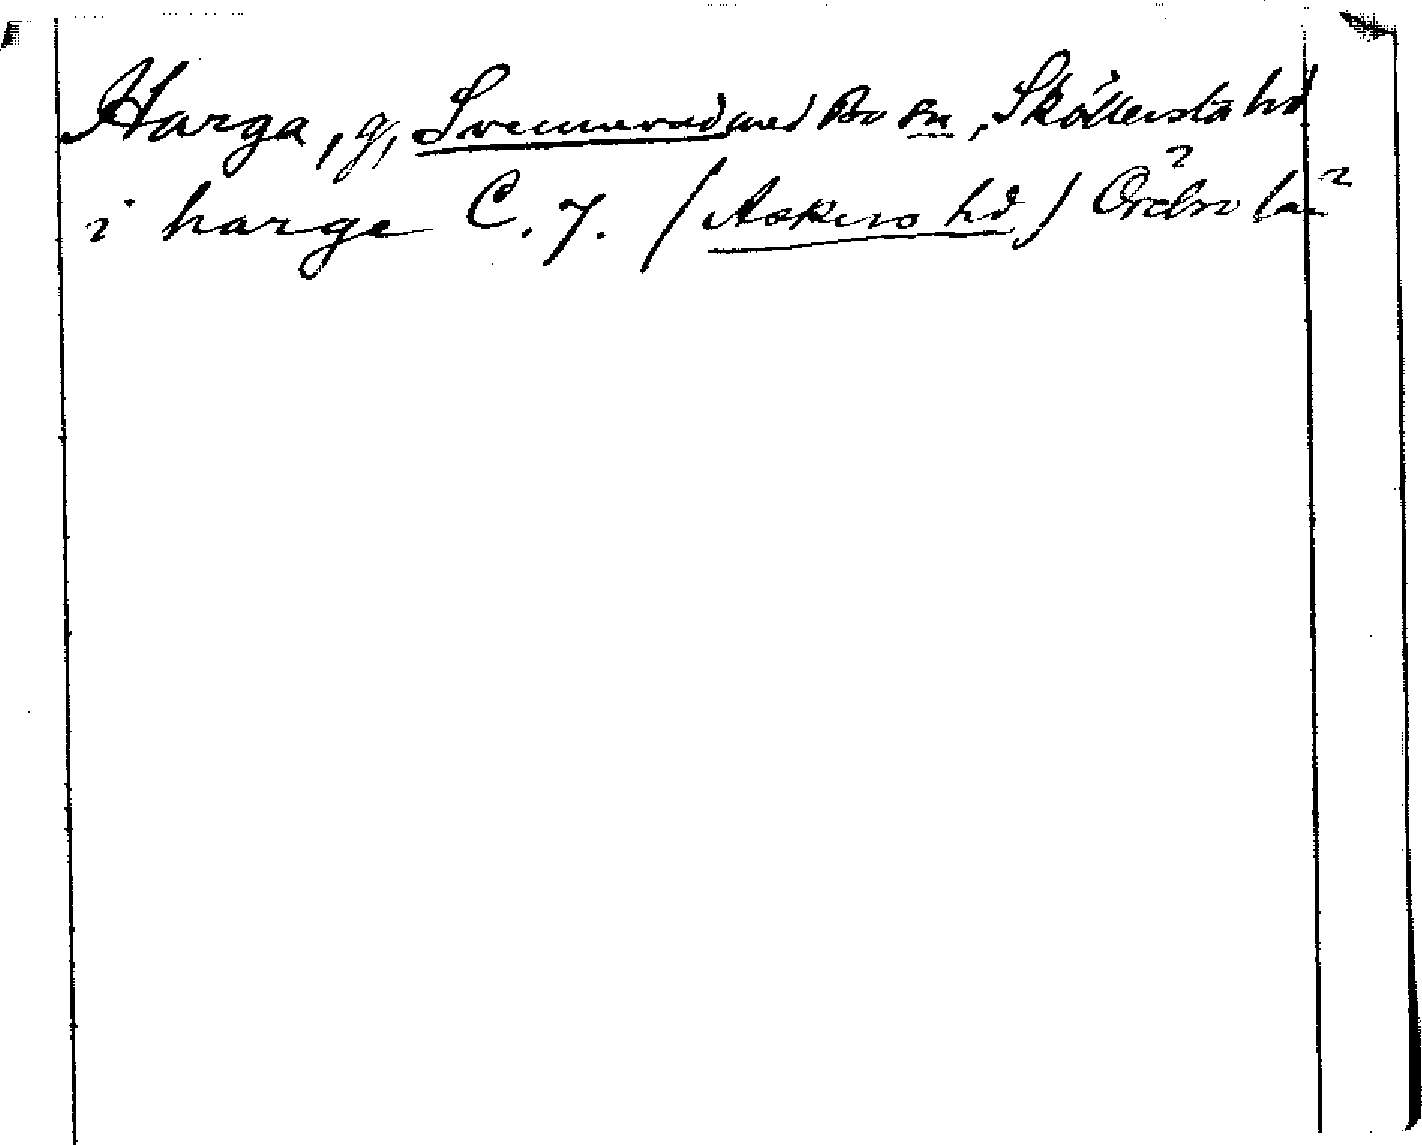 Harga, g, Svennevad med Bo sn, Sköllersta hd
i harge C. 7. (Askers hd) Örebro län